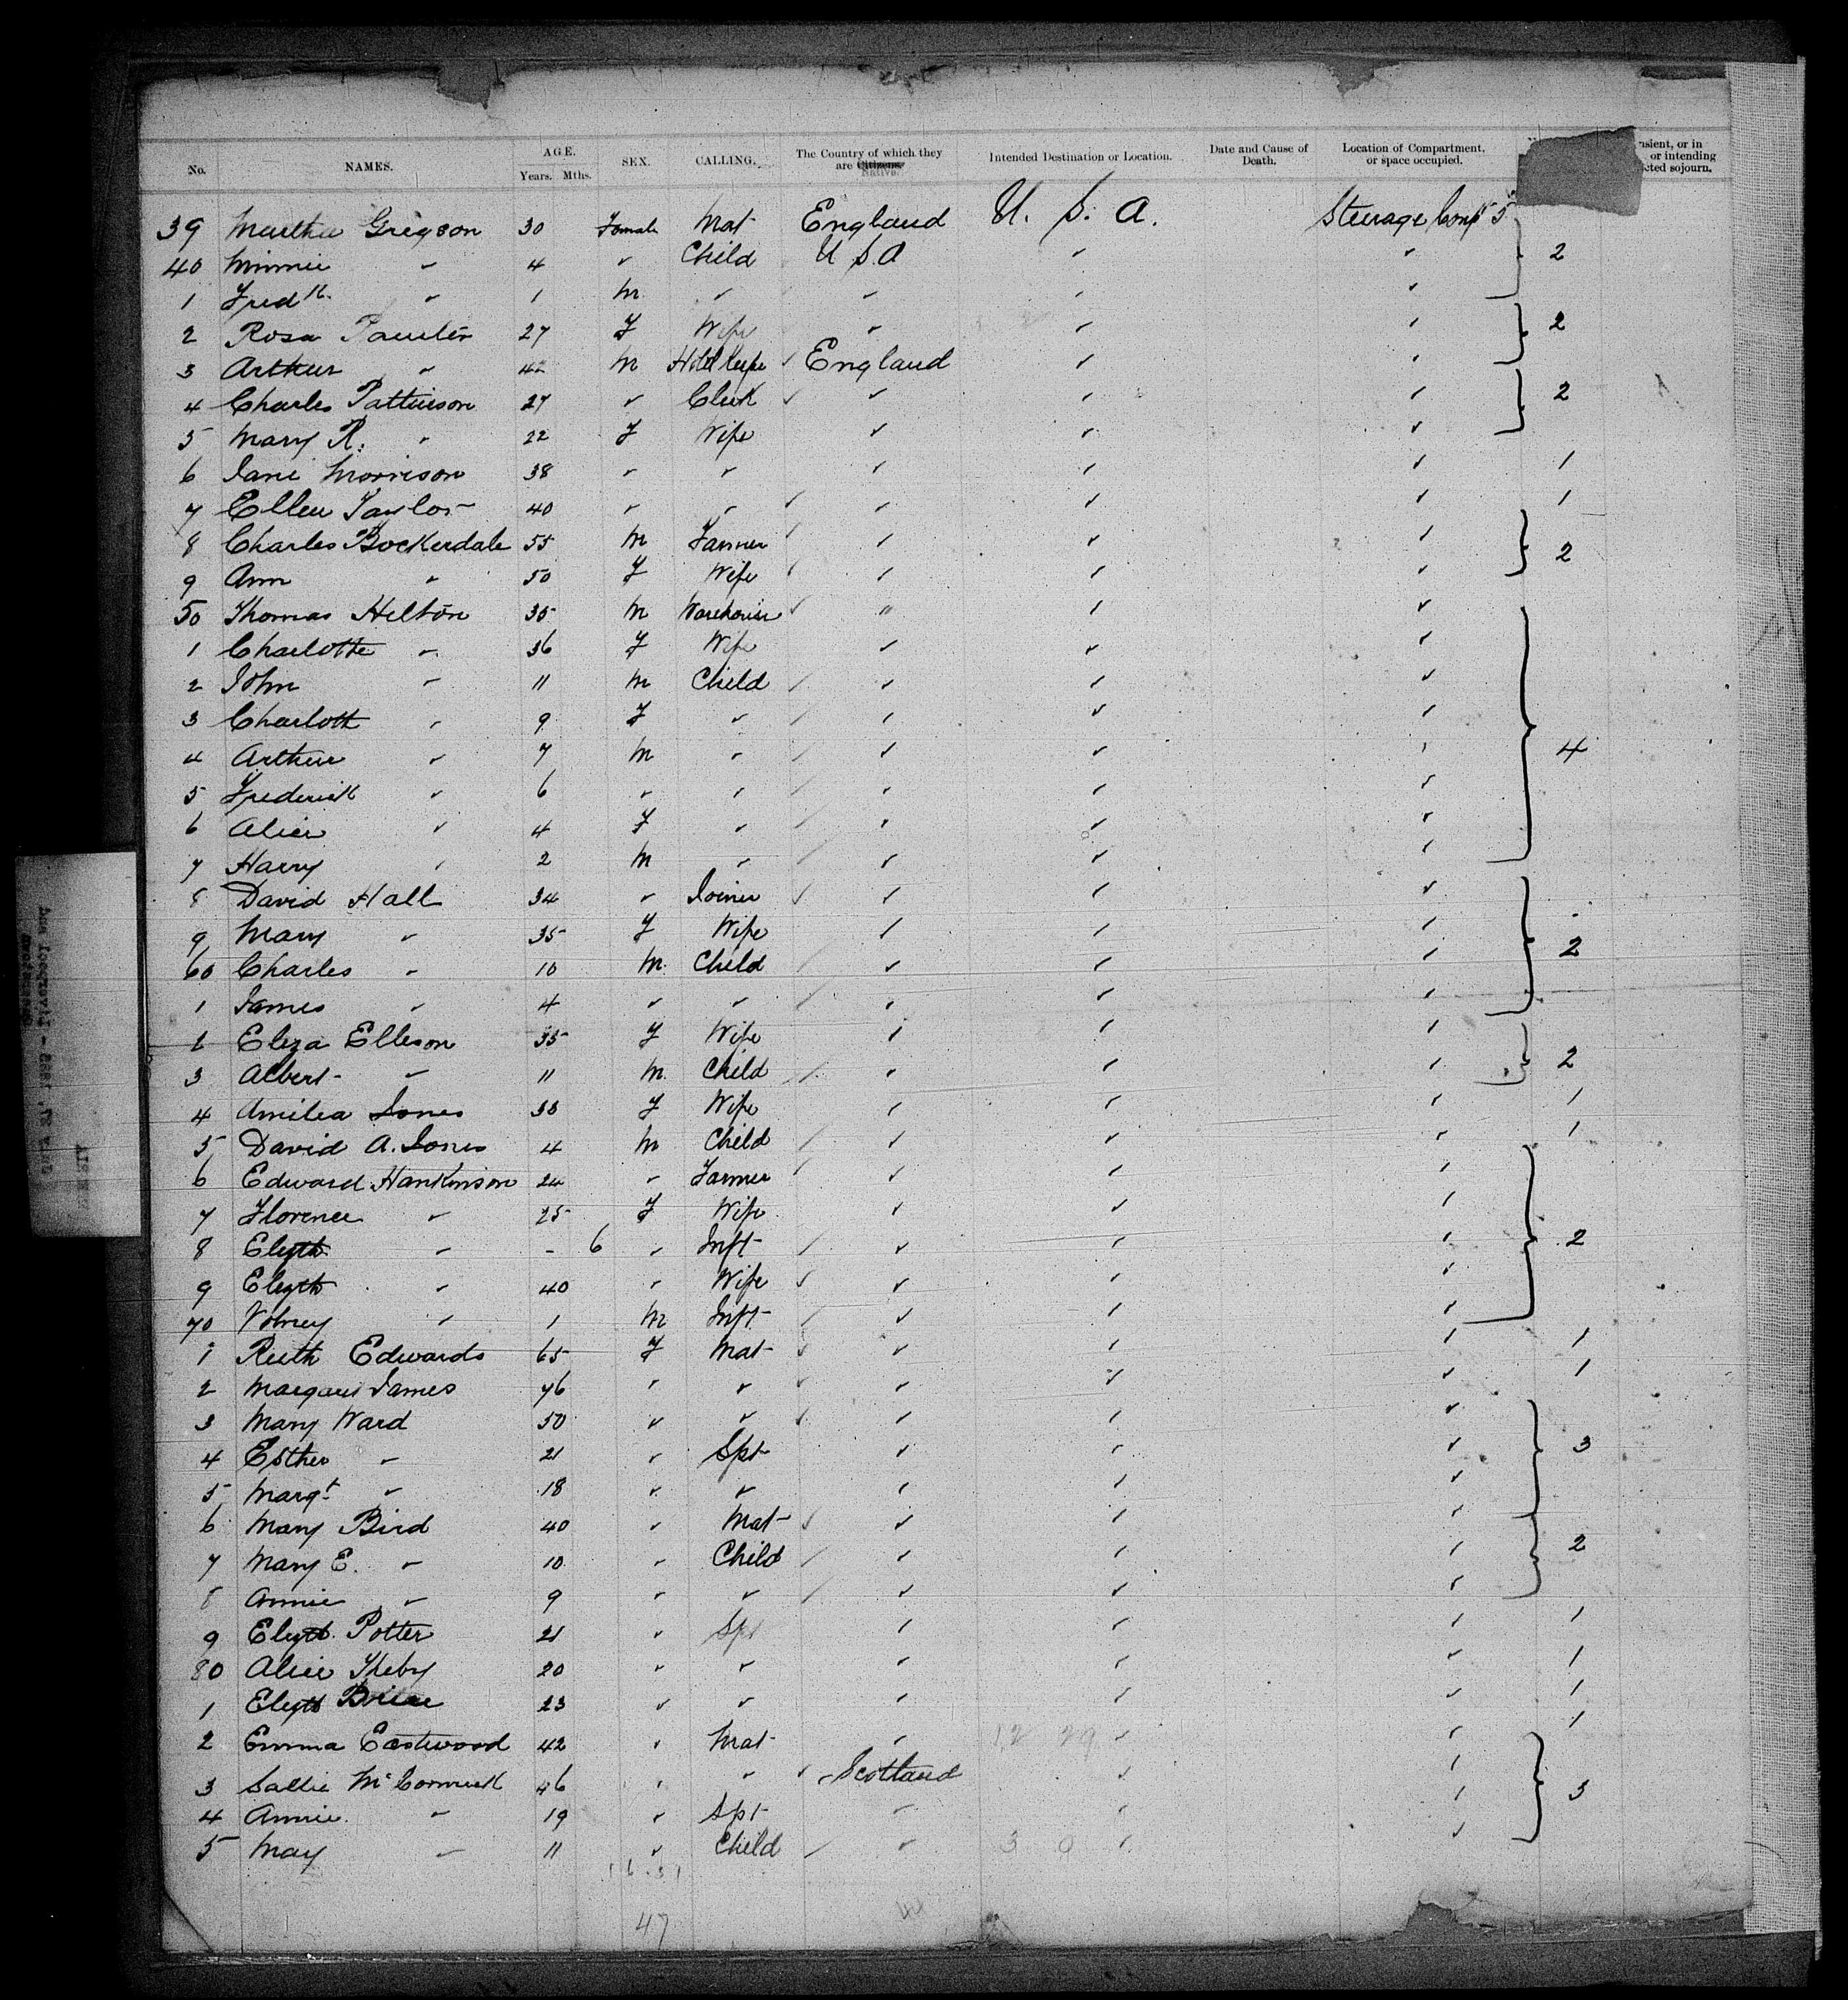 No. NAMES. AGE. Years. Mths. SEX. CALLING. The Country of which they are Citizens. Native. Intended Destination or Location. Date and Cause of Death. Location of Compartment, or space occupied. nsient, or in or intending cted sojourn.
39 Martha Gregson 30 Female Mat England U. S. A. Steerage Compt 5
40 Minnie " 4 " Child U S. A " " 2
1 Fredk " 1 M " " " "
2 Rosa Painter 27 F Wife " " " 2
3 Arthur " 42 M Hotel Keeper England " "
4 Charles Pattinson 27 " Clerk " " " 2
5 Mary R. " 22 F Wife " " "
6 Jane Morrison 38 " " " " " 1
7 Ellen Taylor 40 " " " " " 1
8 Charles Bockerdale 55 M Farmer " " " 2
9 Ann " 50 F Wife " " "
50 Thomas Hilton 35 M Warehouse " " "
1 Charlotte " 36 F Wife " " "
2 John " 11 M Child " " "
3 Charlott " 9 F " " " "
4 Arthur " 7 M " " " " 4
5 Frederick " 6 " " " " "
6 Alice " 4 F " " " "
7 Harry " 2 M " " " "
8 David Hall 34 " Joiner " " "
9 Mary " 35 F Wife " " " 2
60 Charles " 10 M. Child " " "
1 James " 4 " " " " "
2 Eliza Elleson 35 F Wife " " "
3 Albert " 11 M. Child " " " 2
4 Amilia Jones 33 F Wife " " " 1
5 David A. Jones 4 M Child " " " 1
6 Edward Hankinson 24 " Farmer " " "
7 Florence " 25 F Wife " " "
8 Elizth " - 6 " Inft " " " 2
9 Elizth " 40 " Wife " " "
70 Volney " 1 M Inft " " "
1 Ruth Edwards 65 F Mat " " " 1
2 Margaret James 76 " " " " " 1
3 Mary Ward 50 " " " " "
4 Esther " 21 " Spt " " " 3
5 Margt " 18 " " " " "
6 Mary Bird 40 " Mat " " "
7 Mary E. " 10 " Child " " " 2
8 Annie " 9 " " " " "
9 Elizth Potter 21 " Spt " " " 1
80 Alice 20 " " " " " 1
1 Elizth 23 " " " " " 1
2 Emma Eastwood 42 " Mat " 12 29 " " 1
3 Sallie McCormick 46 " " Scotland " "
4 Annie " 19 " Spt " " " 3
5 May " 11 " Child " 3 0 " "
16.31
47